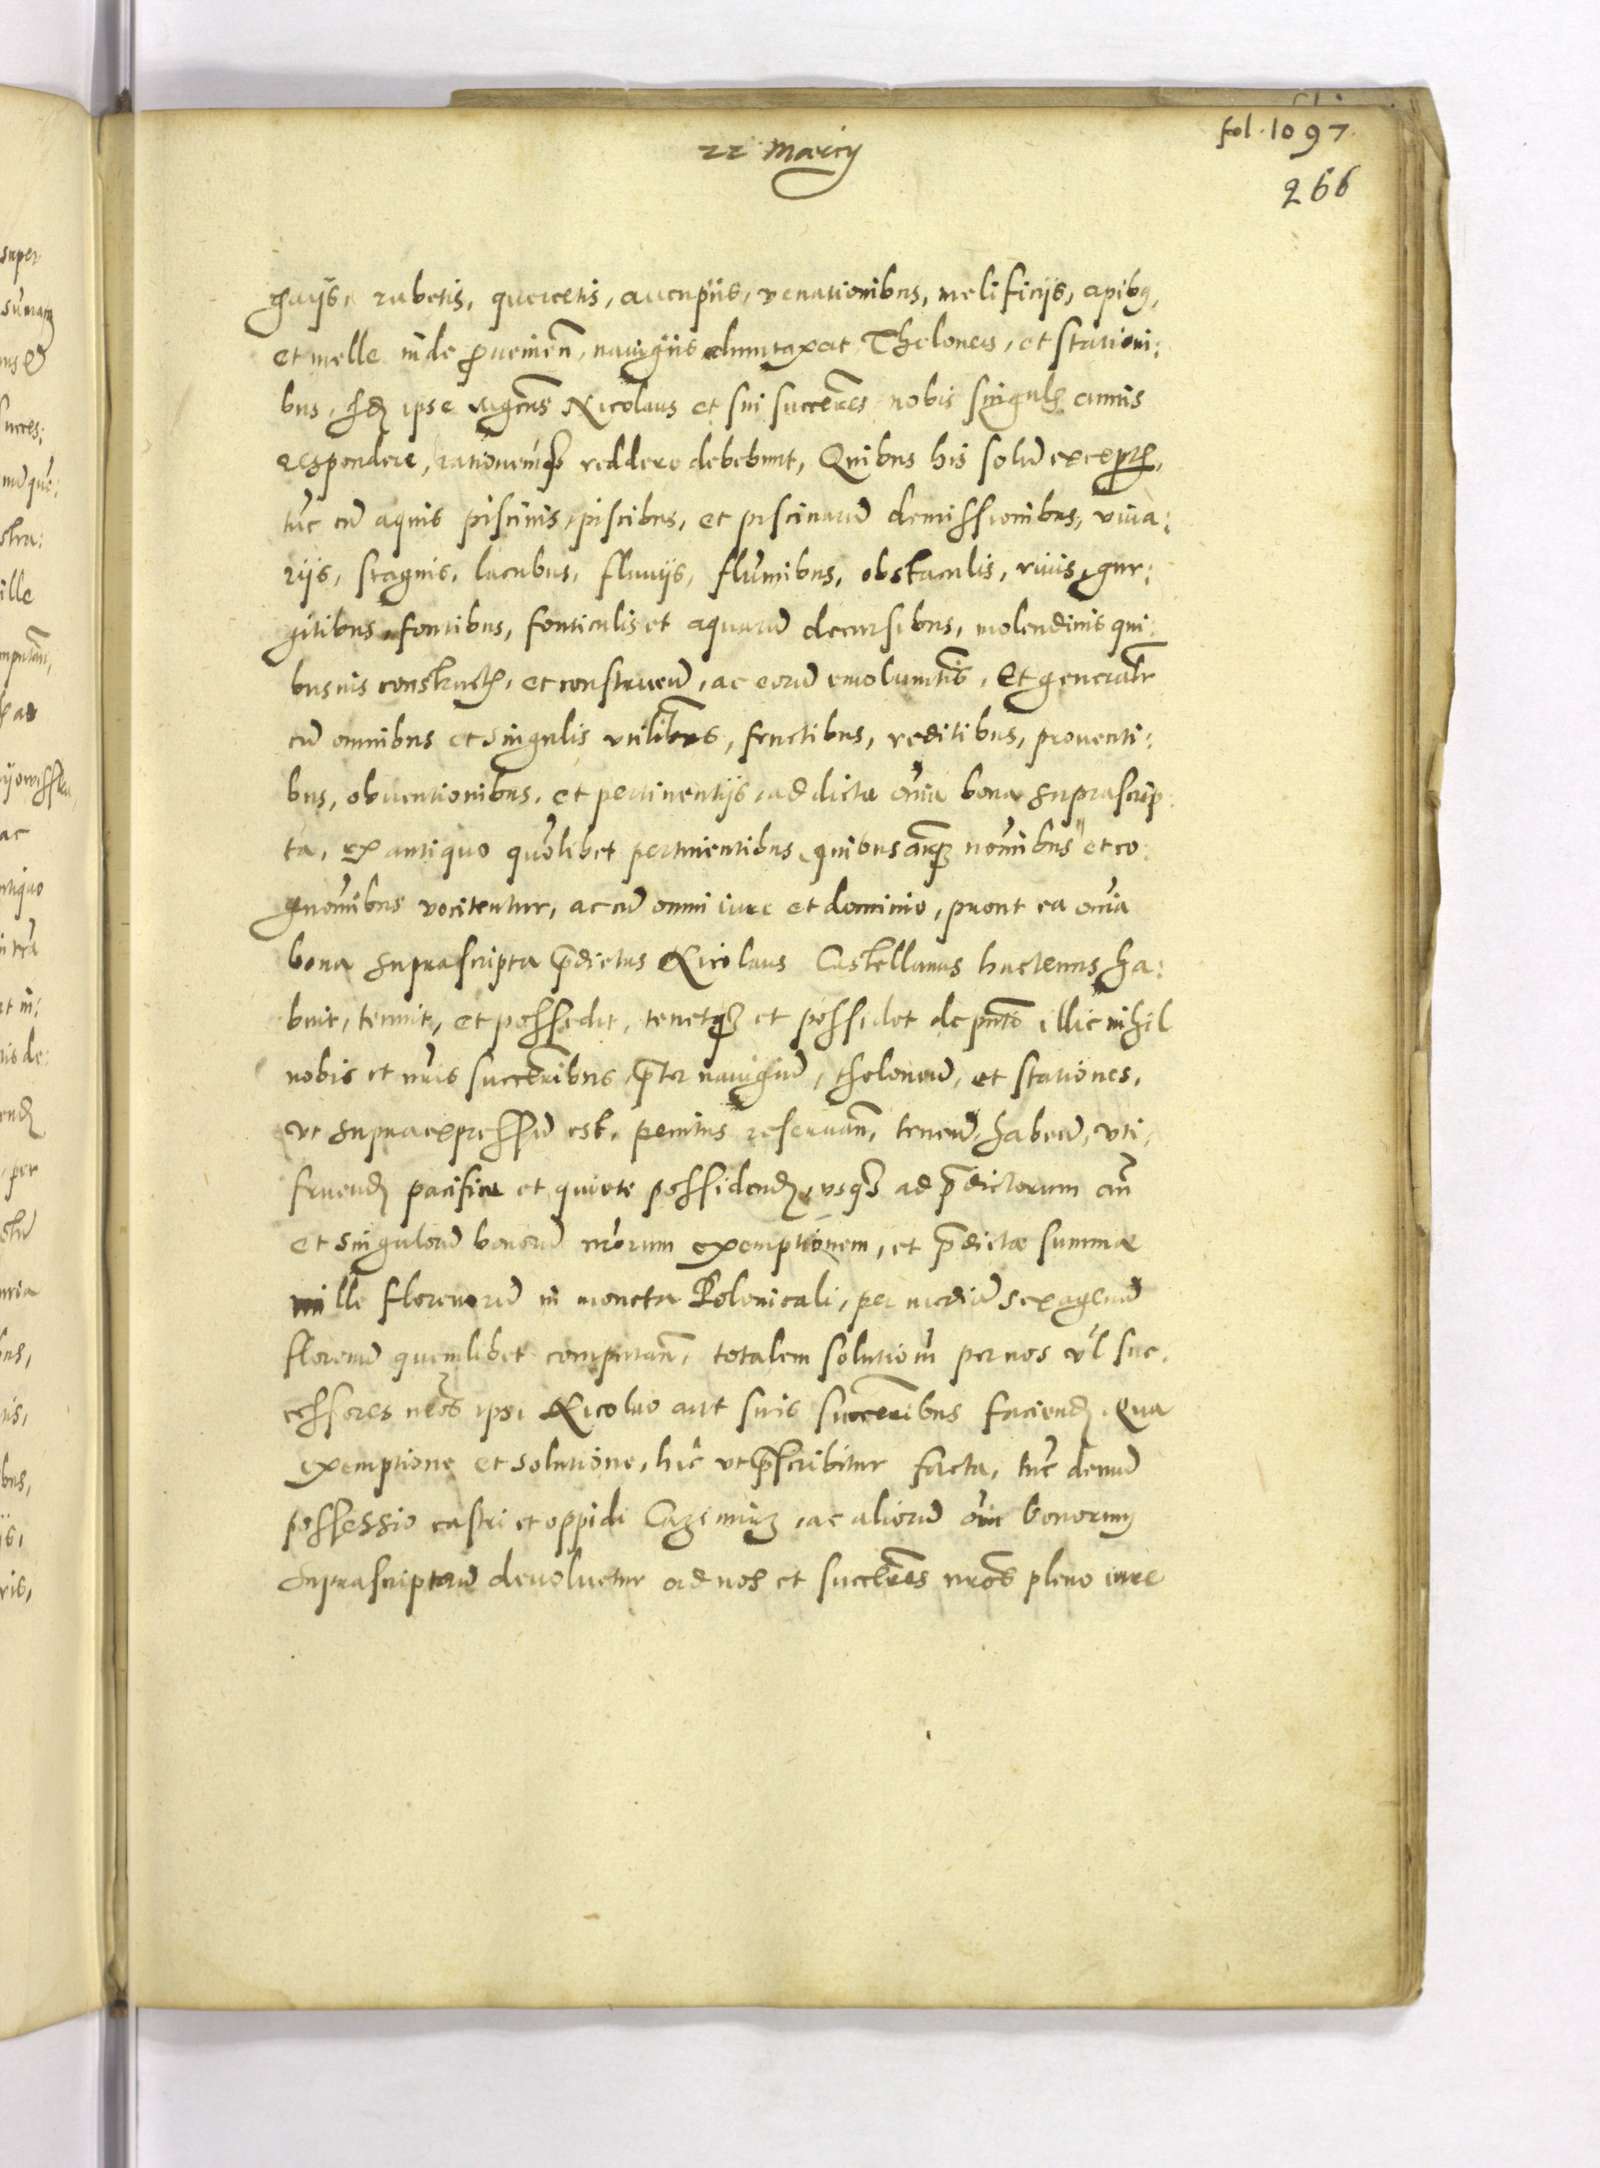 22 Marcy
fol. 1097.
266
gaijs, rubetis, quercetis, aucupiis, venationibus, melificijs, apibus,
et melle inde proueñ, nauigiis dumtaxat Theloneis, et stationi:
bus, ipse Nicolaus et sui succeres nobis singulis annis
respondere, rationemque reddere debebunt, Quibus his solum exceptis,
tunc cum aquis piscinis, piscibus, et piscinarum demissionibus, viua:
rijs, stagnis, lacubus, fluuijs, fluminibus, obstaculis, riuis, gur:
gitibus, fontibus, fonticulis et aquarum decursibus, molendinis qui:
busuis constructis, et construeñ, ac eorum emolumentis, Et generaliter
cum omnibus et singulis vtilitatibus, fructibus, reditibus, prouenti:
bus, obuentionibus, et pertinentijs, ad dicta omnia bona suprascrip:
ta, ex antiquo quomolibet pertinentibus, quibuscunque nominibus et co:
gnominibus vocitentur, ac cum omni iure et dominio, prout ea omnia
bona suprascripta prædictus Nicolaus Castellanus hactenus ha:
buit, tenuit, et possedit, tenetque et possidet de pnti illic nihil
nobis et nris succeribus, præter nauigium, theloneum, et stationes,
vt supraexpressum est, penitus reseruan, teneñ, habeñ, vti,
fruend pacifice et quiete possidend, vsque ad prædictorum omni
et singulorum bonorum nrorum exemptionem, et prædictæ summæ
mille florenorum in moneta Polonicali, per medium sexagenum
florenum quemlibet computan, totalem solutionem per nos vel suc,
cessores nros ipsi Nicolao aut suis succeribus faciend. Qua
exemptione et solutione, hic vt præscribitur facta, tunc demum
possessio castri et oppidi Cazimirz, ac aliorum omni bonorum
suprascriptorum deuoluetur ad nos et succeres nros pleno iure